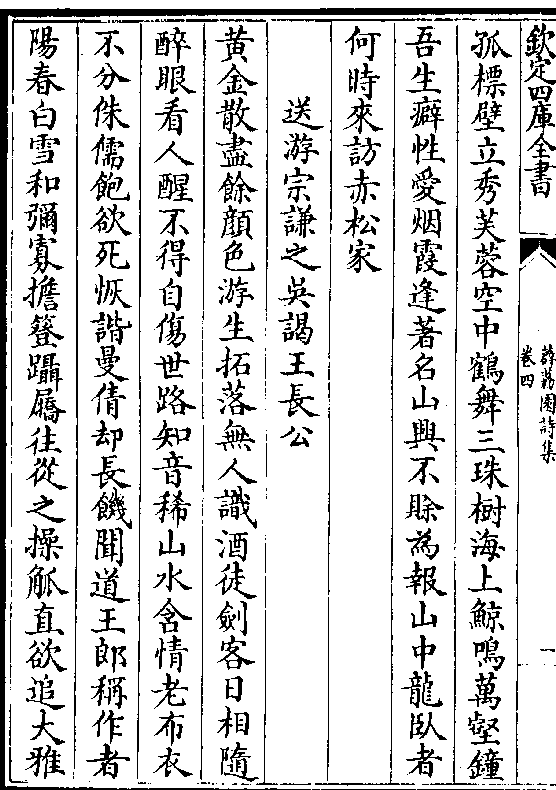 欽定四庫全書
薜荔園詩集
卷四
一
孤標壁立秀芙蓉空中鶴舞三珠樹海上鯨鳴萬壑鐘
吾生癖性愛烟霞逢著名山興不賒為報山中龍臥者
何時來訪赤松家
送游宗謙之吳謁王長公
黄金散盡餘顔色游生拓落無人識酒徒劍客日相隨
醉眼看人醒不得自傷世路知音稀山水含情老布衣
不分侏儒飽欲死恢諧曼倩却長饑聞道王郎稱作者
陽春白雪和彌寡擔簦躡屩往從之操觚直欲追大雅